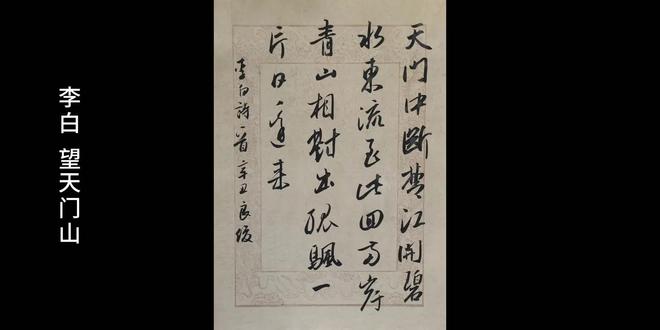 李白 望天门山
天門中斷楚江開碧
水東流至此回两岸
青山相對出孤颿一
片日邊来
李白詩一首辛丑良